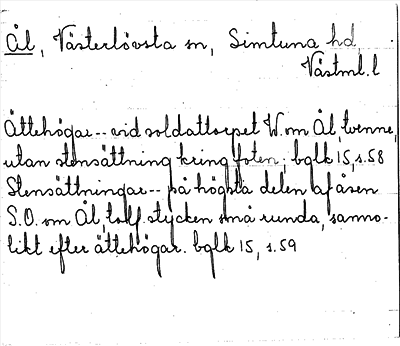 Ål, Västerlövsta sn, Simtuna hd,
Västml. l
Ättehögar -- vid soldattorpet W. om Ål, tvenne,
utan stensättning kring foten; bglk 15, s. 58
Stensättningar -- på högsta delen af åsen
S.O. om Ål, tolf stycken små runda, sanno-
likt efter ättehögar. bglk 15, s. 59